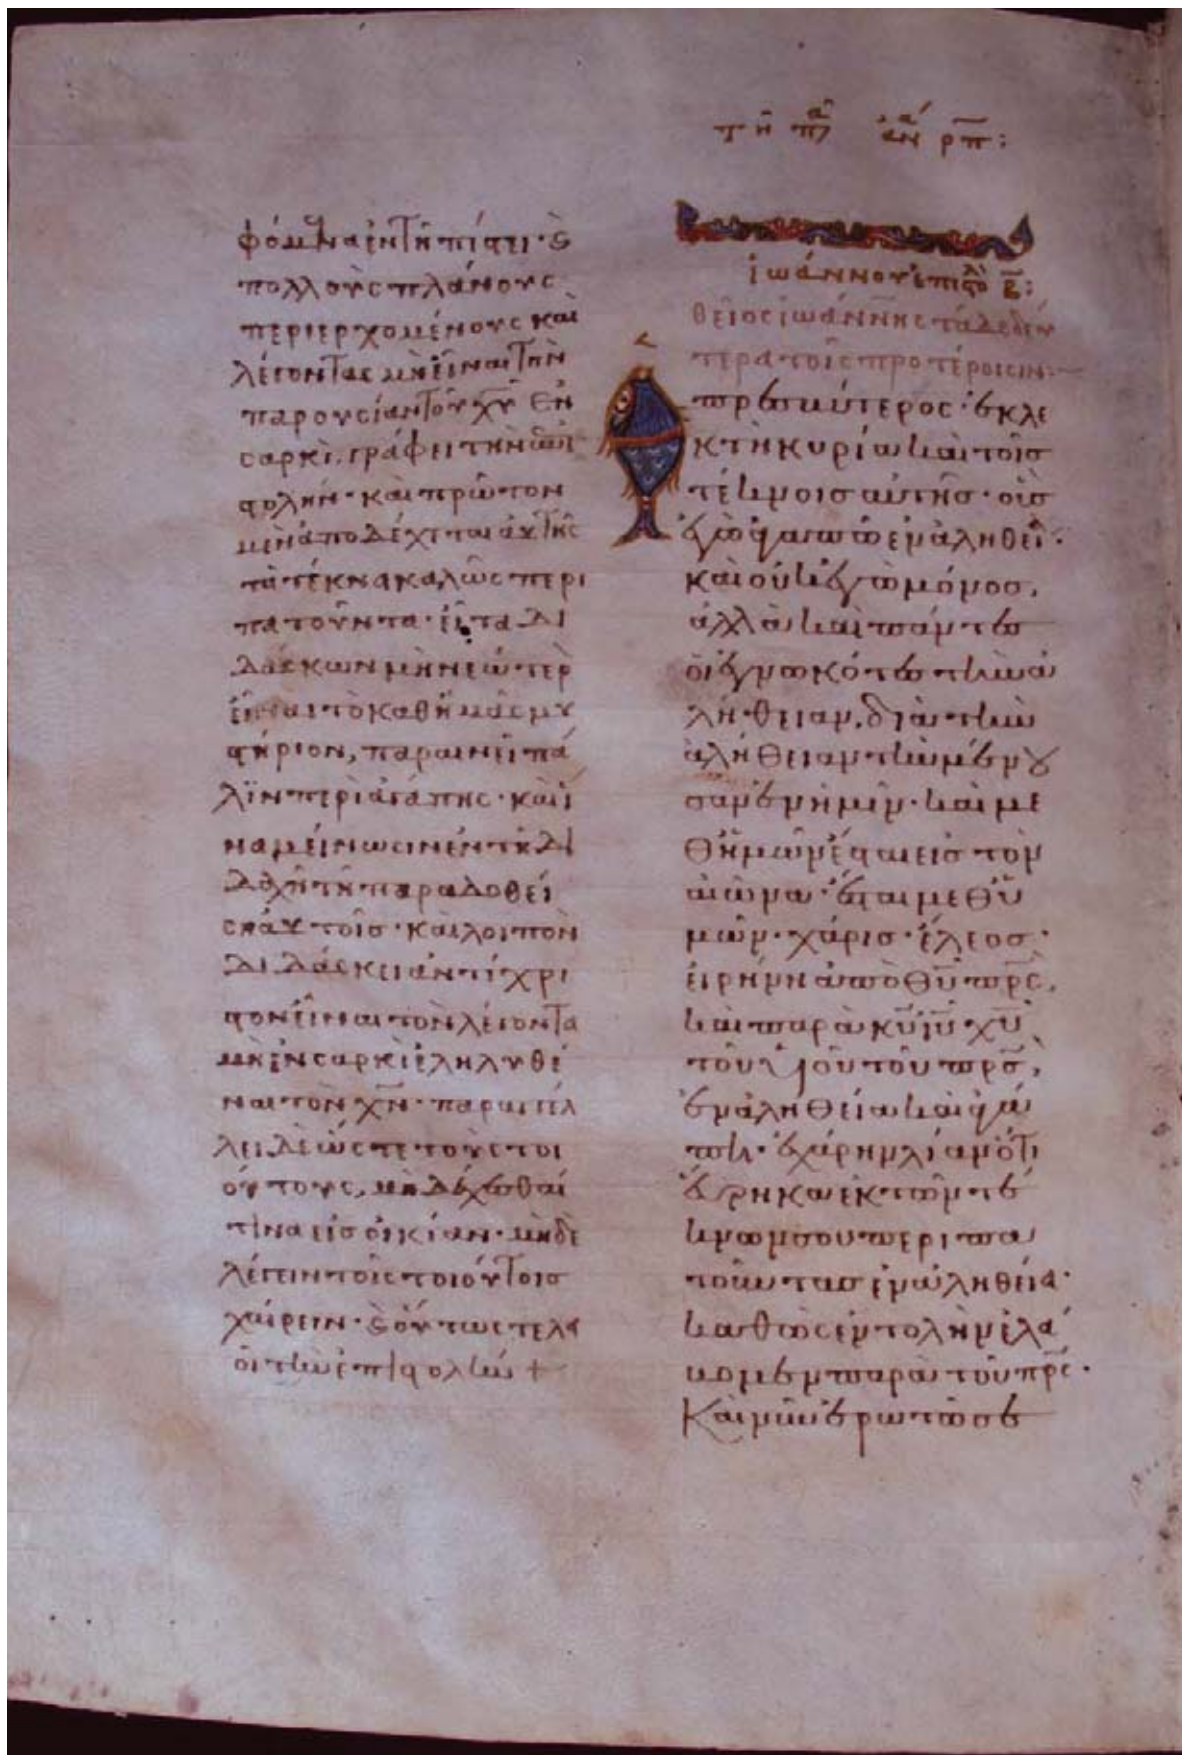 τῆ
φόμενα ἐν τῆ πίστει·
πολλοὺς πλάνους
περιερχομένους καὶ
λέγοντας μὴ εἶναι τὴν
παρουσίαν τοῦ χῦ ἐν
σαρκὶ. γράφει τὴν ἐπι
στολήν· καὶ πρῶτον
μὲν ἀποδέχεται αὐτῆς
τὰ τέκνα καλῶς περι
πατοῦντα· εἶτα δι
δάσκων μὴ νεώτερὸ
εἶναι τὸ καθ ἡμᾶς μυ
στήριον, παραινεῖ πά
λϊν περὶ ἀγάπης· καὶ ἵ
να μείνωσιν ἐν τῆ δι
δαχῆ τῆ παραδοθεί
ση αὐτοῖς· καὶ λοιπὸν
διδάσκει ἀντίχρι
στον εἶναι τὸν λέγοντα
μὴ ἐν σαρκὶ ἐληλυθέ
ναι τὸν χν̅· παραγγέλ
λει δὲ ὥστε τοὺς τοι
ούτους, μὴ δέχεσθαί
τινα εἰς οἰκίαν· μὴ δὲ
λέγειν τοῖς τοιούτοις
χαίρειν· οὕτως τελει
οῖ τὴν ἐπιστολήν +
ἰωάννου ἐπιστολὴ β̅:
θεῖος ἰωάννης τάδε δευ
τερα τοῖς προτέροισιν:
πρεσβύτερος· ἐκλε
κτῆ κυρία καὶ τοῖς
τέκνοις αὐτῆς· οὓς
ἐγὼ ἀγαπῶ ἐν ἀληθεία·
καὶ οὐκ ἐγὼ μόνος,
ἀλλὰ καὶ πάντες
οἱ ἐγνωκότες τὴν ἀ
λήθειαν, διὰ τὴν
ἀλήθειαν τὴν μένου
σαν ἐν ἡμῖν· καὶ με
θ ἡμῶν ἔσται εἰς τὸν
αἰῶνα· ἔσται μεθ ὑ
μῶν· χάρις· ἔλεος·
εἰρήνη ἀπὸ θῦ πρς̅,
καὶ παρὰ κῦ ἰῦ χῦ
τοῦ υἱοῦ τοῦ πρς̅,
ἐν ἀληθεία καὶ ἀγά
πη· ἐχάρην λίαν ὅτι
εὕρηκα ἐκ τῶν τέ
κνων σου περιπα
τοῦντας ἐν ἀληθεία·
καθὼς ἐντολὴν ἐλά
βομεν παρὰ τοῦ πρς̅·
Καὶ νῦν ἐρωτῶ σε